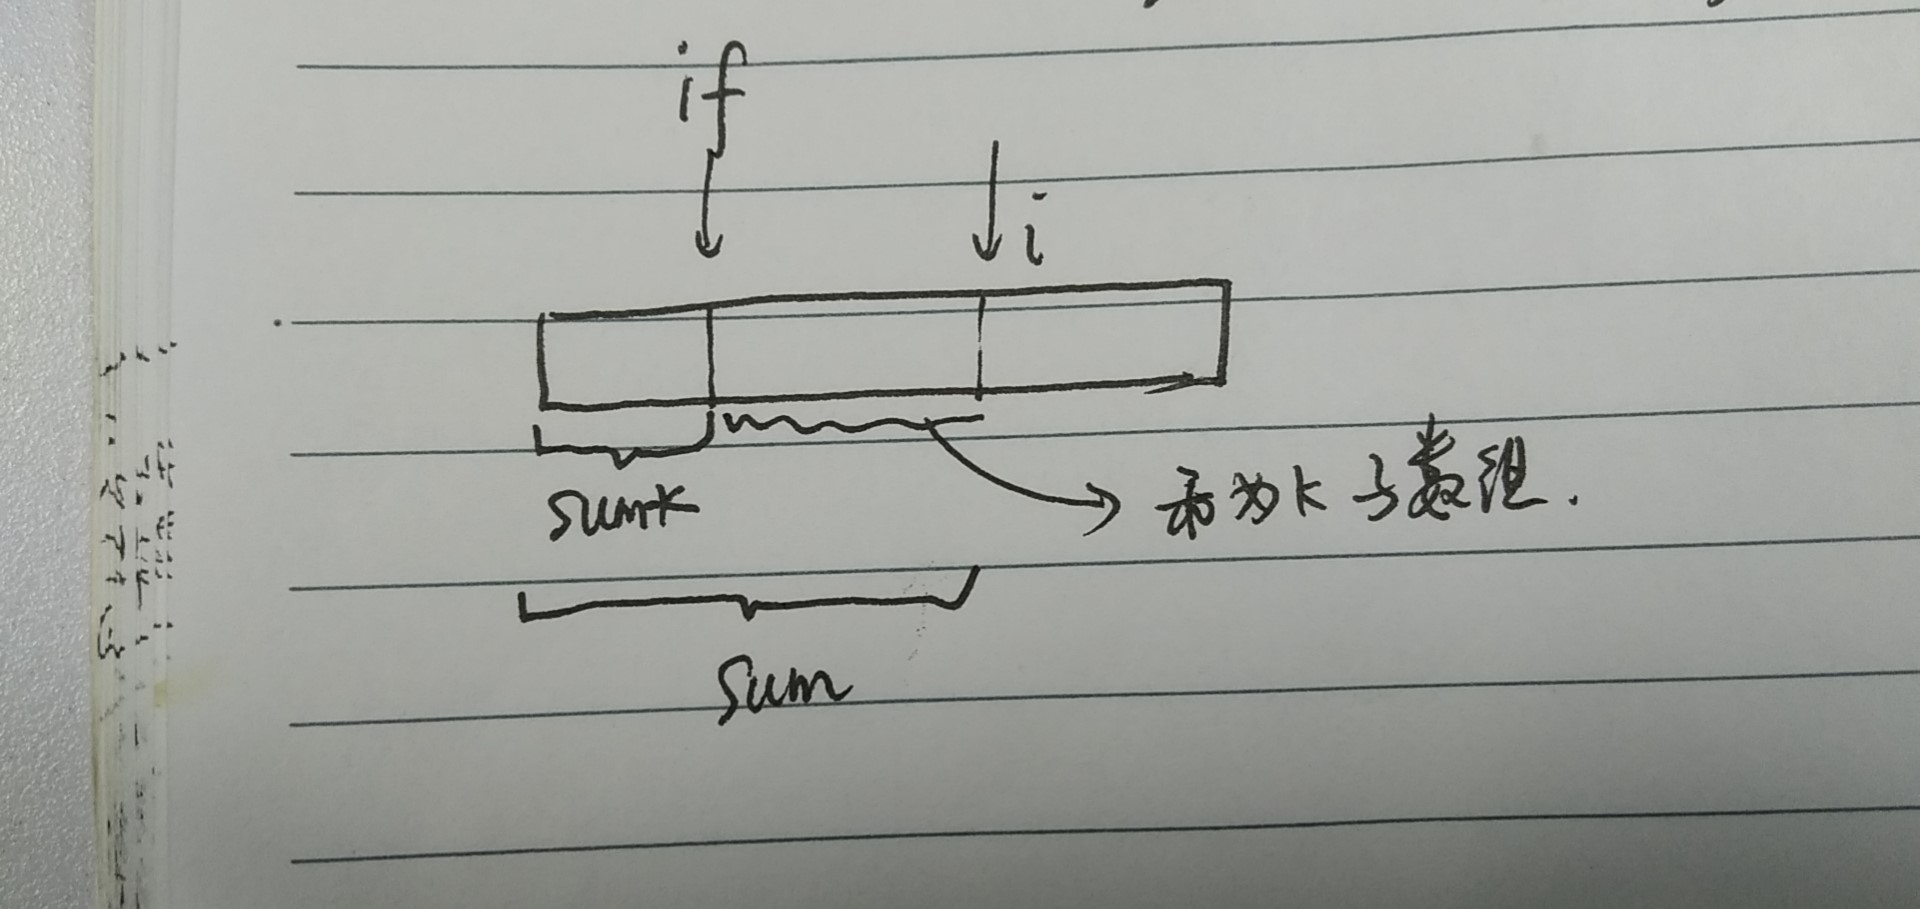 if
i
sumk
和为k子数组.
sum